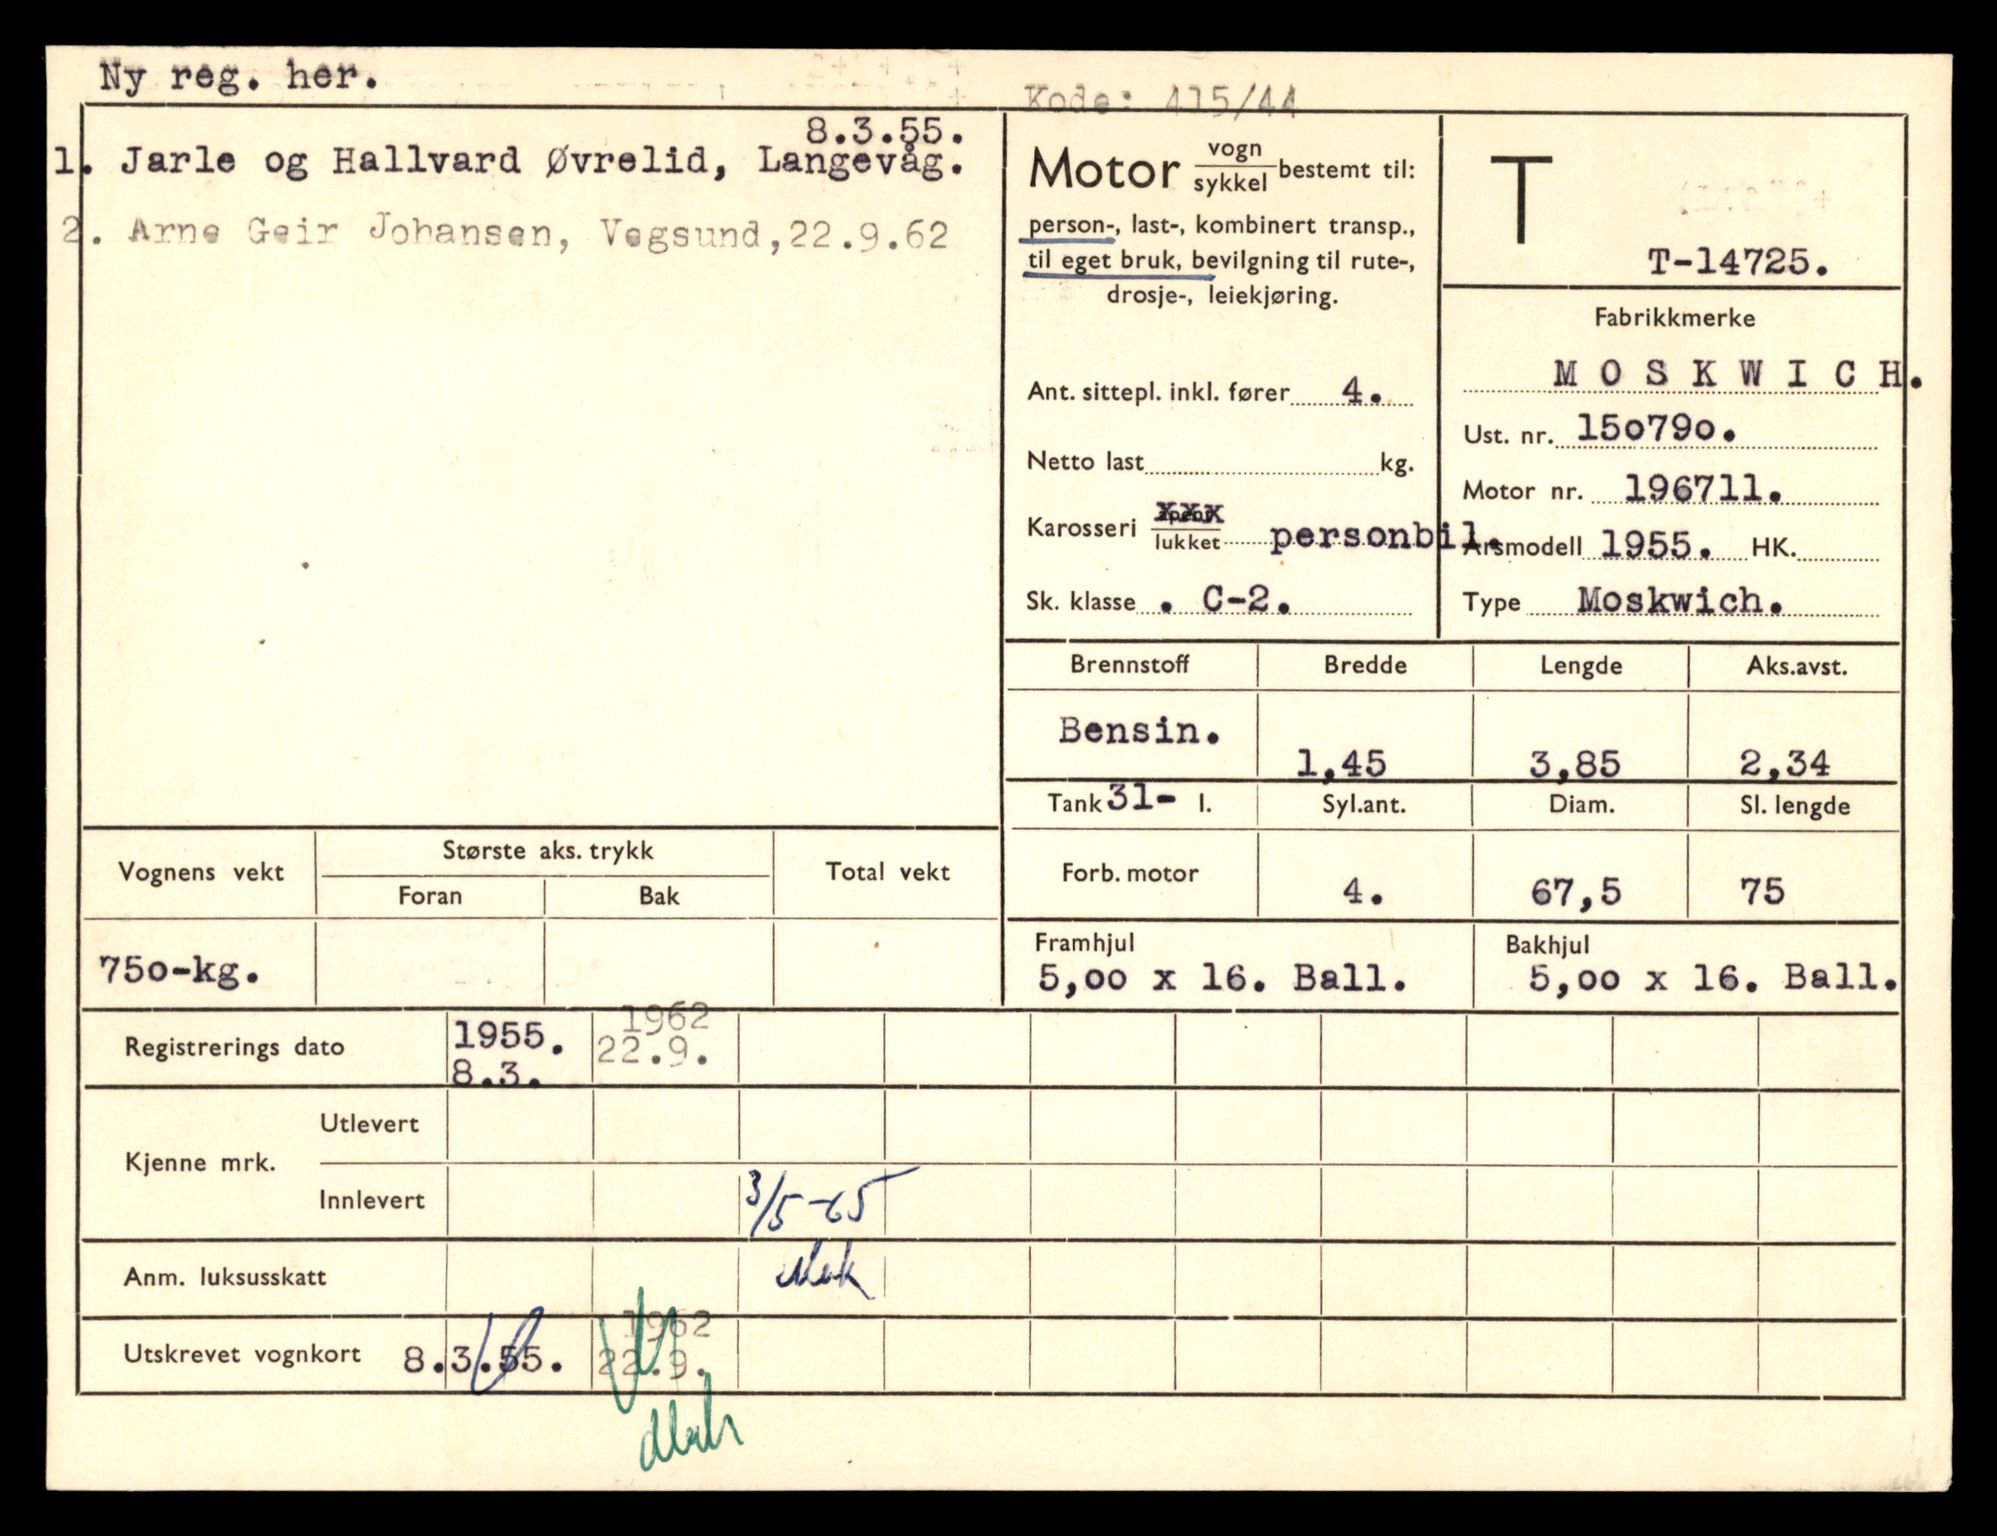 Ny reg. her.
Kode: 415/44
8.3.55.
1. Jarle og Hallvard Øvrelid, Langevåg.
2. Arne Geir Johansen, Vegsund, 22.9.62
Motor vogn/sykkel bestemt til:
person-, last-, kombinert transp.,
til eget bruk, bevilgning til rute-,
drosje-, leiekjøring.
Ant. sittepl. inkl. fører 4.
Netto last kg.
Karosseri åpent/lukket personbil.
xxx
Sk. klasse . C-2.
T
T-14725.
Fabrikkmerke
MOSKWICH.
Ust. nr. 15o79o.
Motor nr. 196711.
Årsmodell 1955. HK.
Type Moskwich.
Brennstoff Bredde Lengde Aks.avst.
Bensin. 1,45 3,85 2,34
Tank 31- l. Syl.ant. Diam. Sl. lengde
Forb. motor 4. 67,5 75
Framhjul Bakhjul
5,oo x 16. Ball. 5,oo x 16. Ball.
Vognens vekt Største aks. trykk Total vekt
Foran Bak
75o-kg.
Registrerings dato 1955. 8.3. 1962 22.9.
Kjenne mrk. Utlevert
Innlevert 3/5-65
Anm. luksusskatt
Utskrevet vognkort 8.3.55. 1962 22.9.